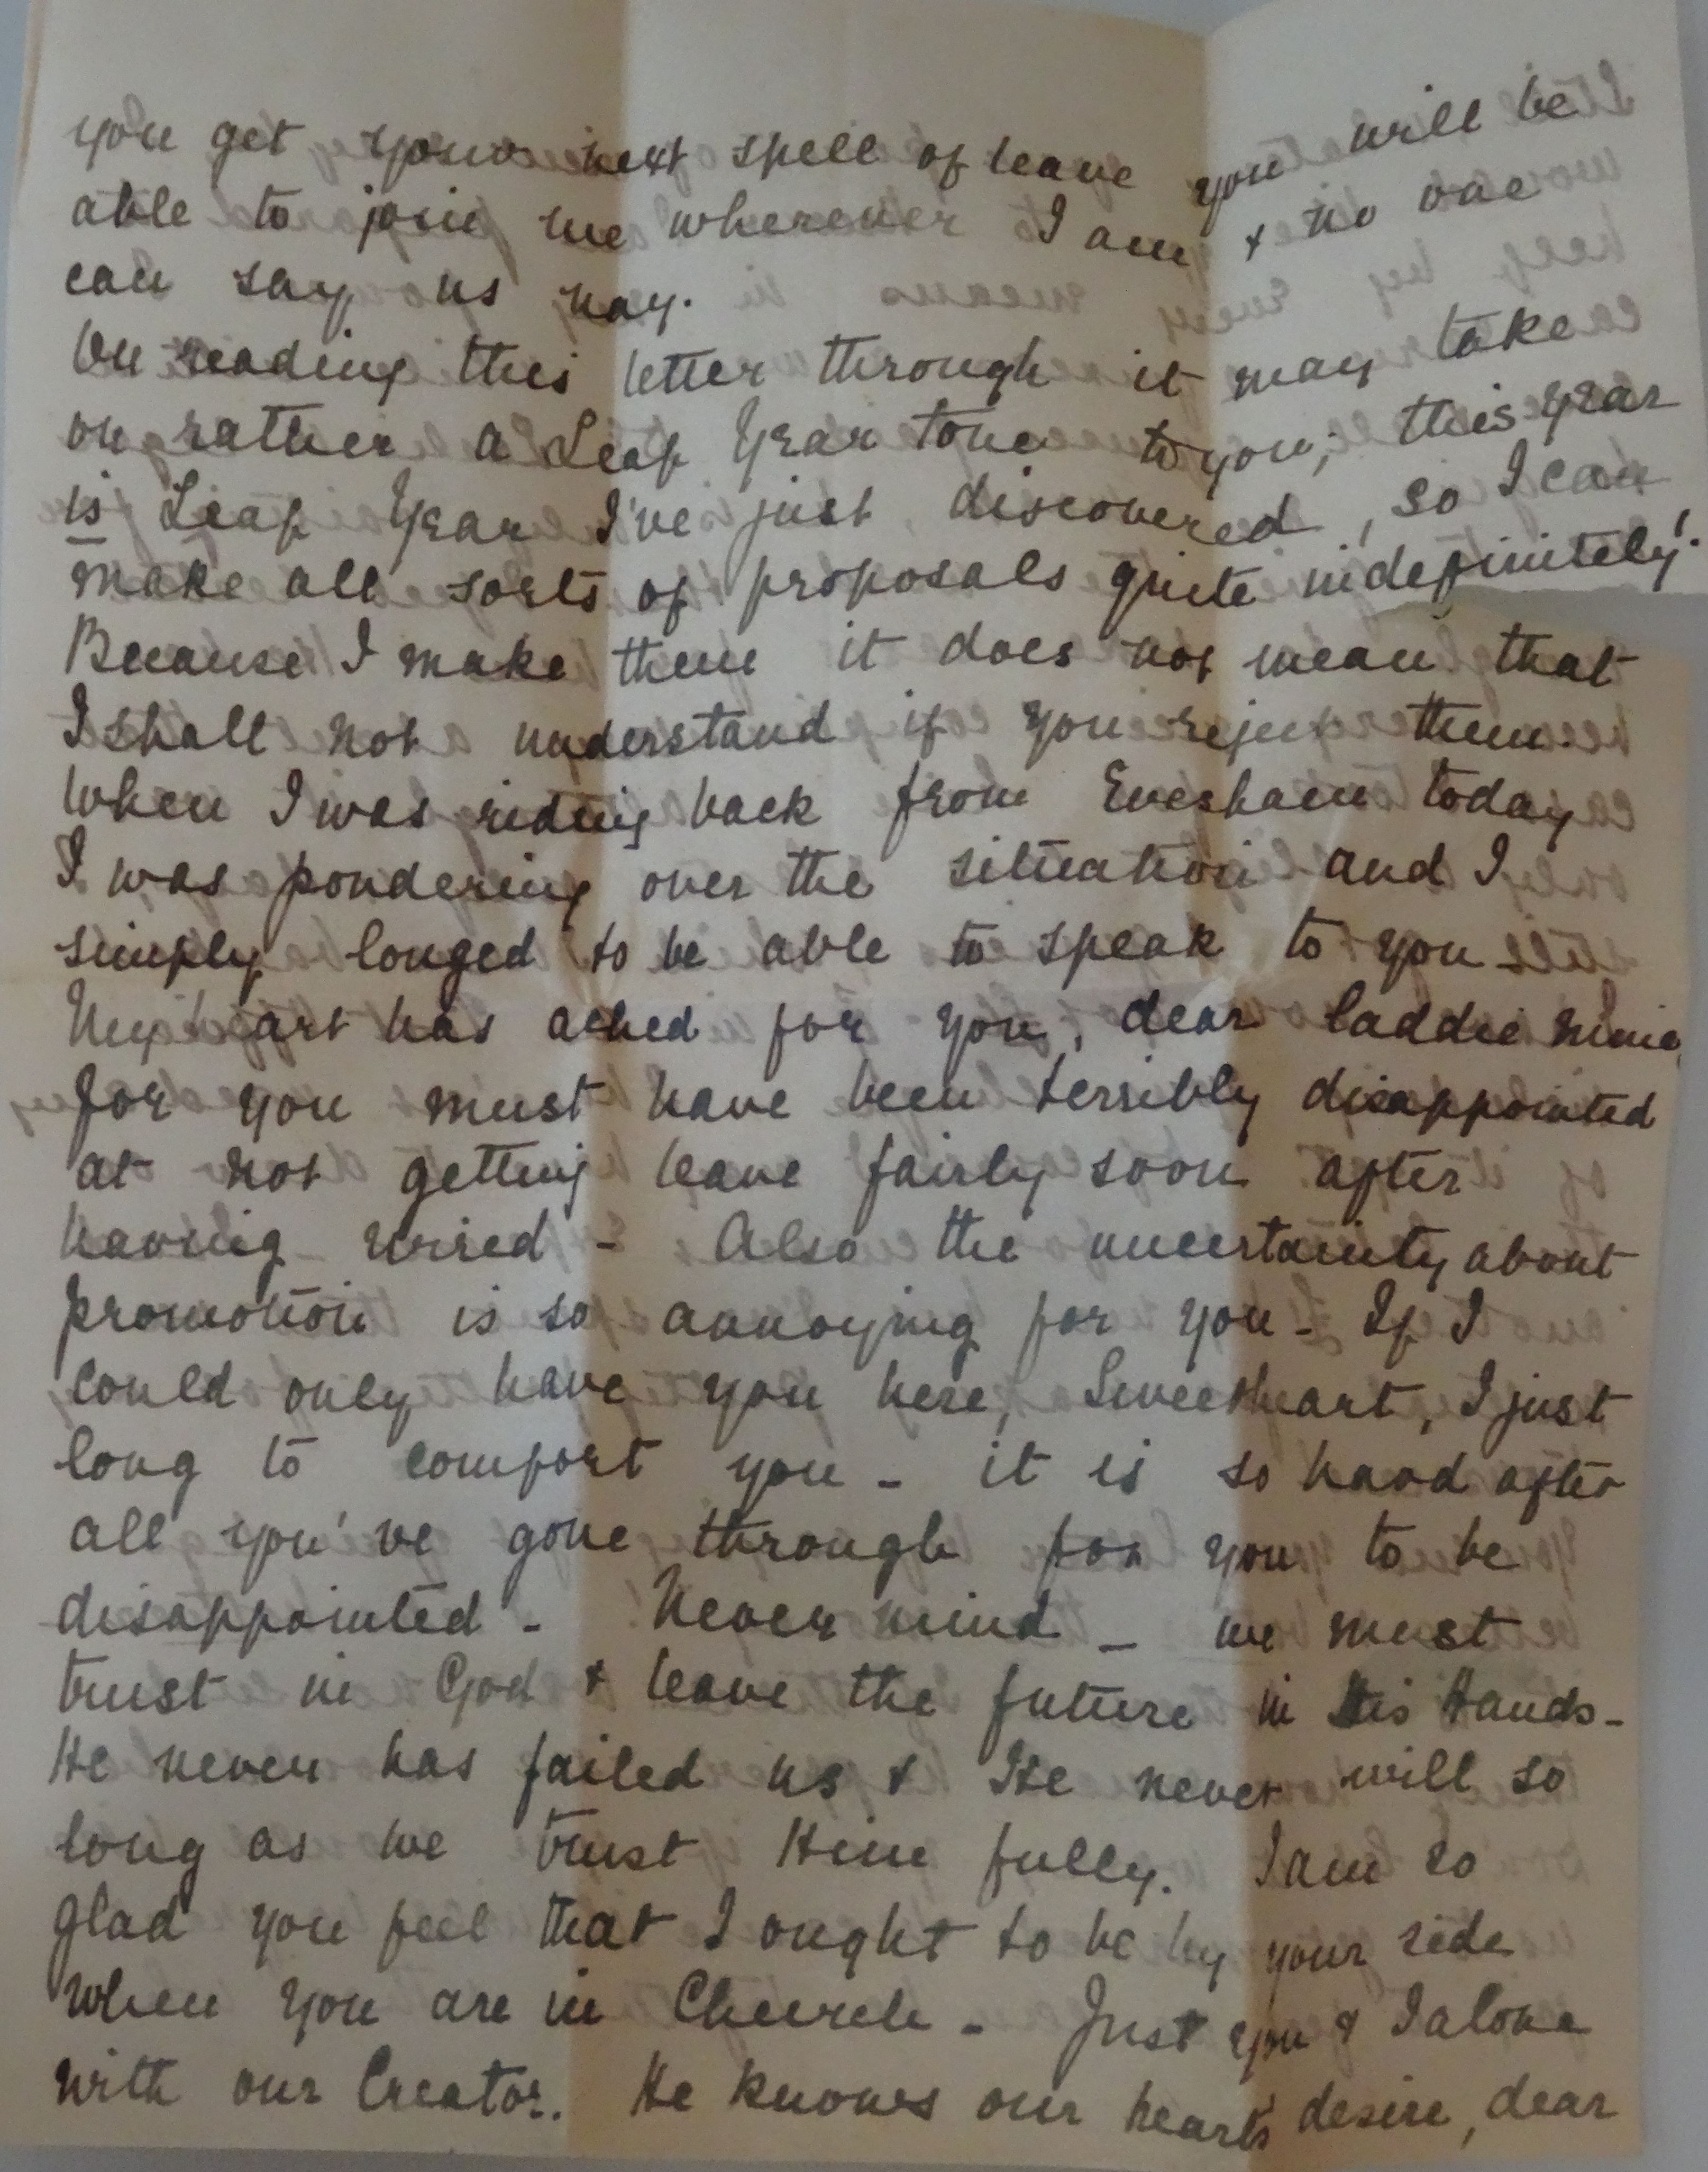 you get your next spell of leave you will be
able to join me wherever I am & no one
can say us nay.
On reading this letter through it may take
on rather a Leap Year tone to you; this year
is Leap Year I've just discovered, so I can
make all sorts of proposals quite indefinitely!
Because I make them it does not mean that
I shall not understand if you reject them.
When I was riding back from Evesham today
I was pondering over the situation and I
simply longed to be able to speak to you -
My heart has ached for you, dear laddie mine,
for you must have been terribly disappointed
at not getting leave fairly soon after
having wired - Also the uncertainty about
promotion is so annoying for you - If I
could only have you here, Sweetheart, I just
long to comfort you - it is so hard after
all you've gone through for you to be
disappointed - Never mind - we must
trust in God & leave the future in His Hands -
He never has failed us & He never will so
long as we trust Him fully. I am so
glad you feel that I ought to be by your side
when you are in Church - Just you & I alone
with our Creator. He knows our hearts desire, dear